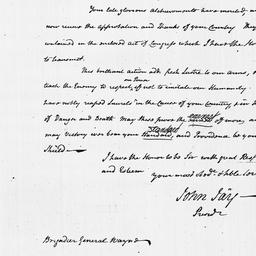 Your late glorious Atchievements have merited, and
now receive the approbation and Thanks of your Country They
contained in the enclosed act of Congress which I have the Hon
to transmit.
This brilliant action adds fresh Lustre to our Arms, and
teach the Enemy to respect, if not to imitate our Humanity
our Power
have nobly reaped Laurels in the Cause of your Country & in
of Danger and Death May these prove the of more, and
earnest
may Victory ever bear your Standard, and Providence be your
Standard
Shield—
I have the Honor to be Sir with great Resp
and Esteem
your most Obdt. & hble Ser
John Jay
Presidt
Brigadier General Wayne